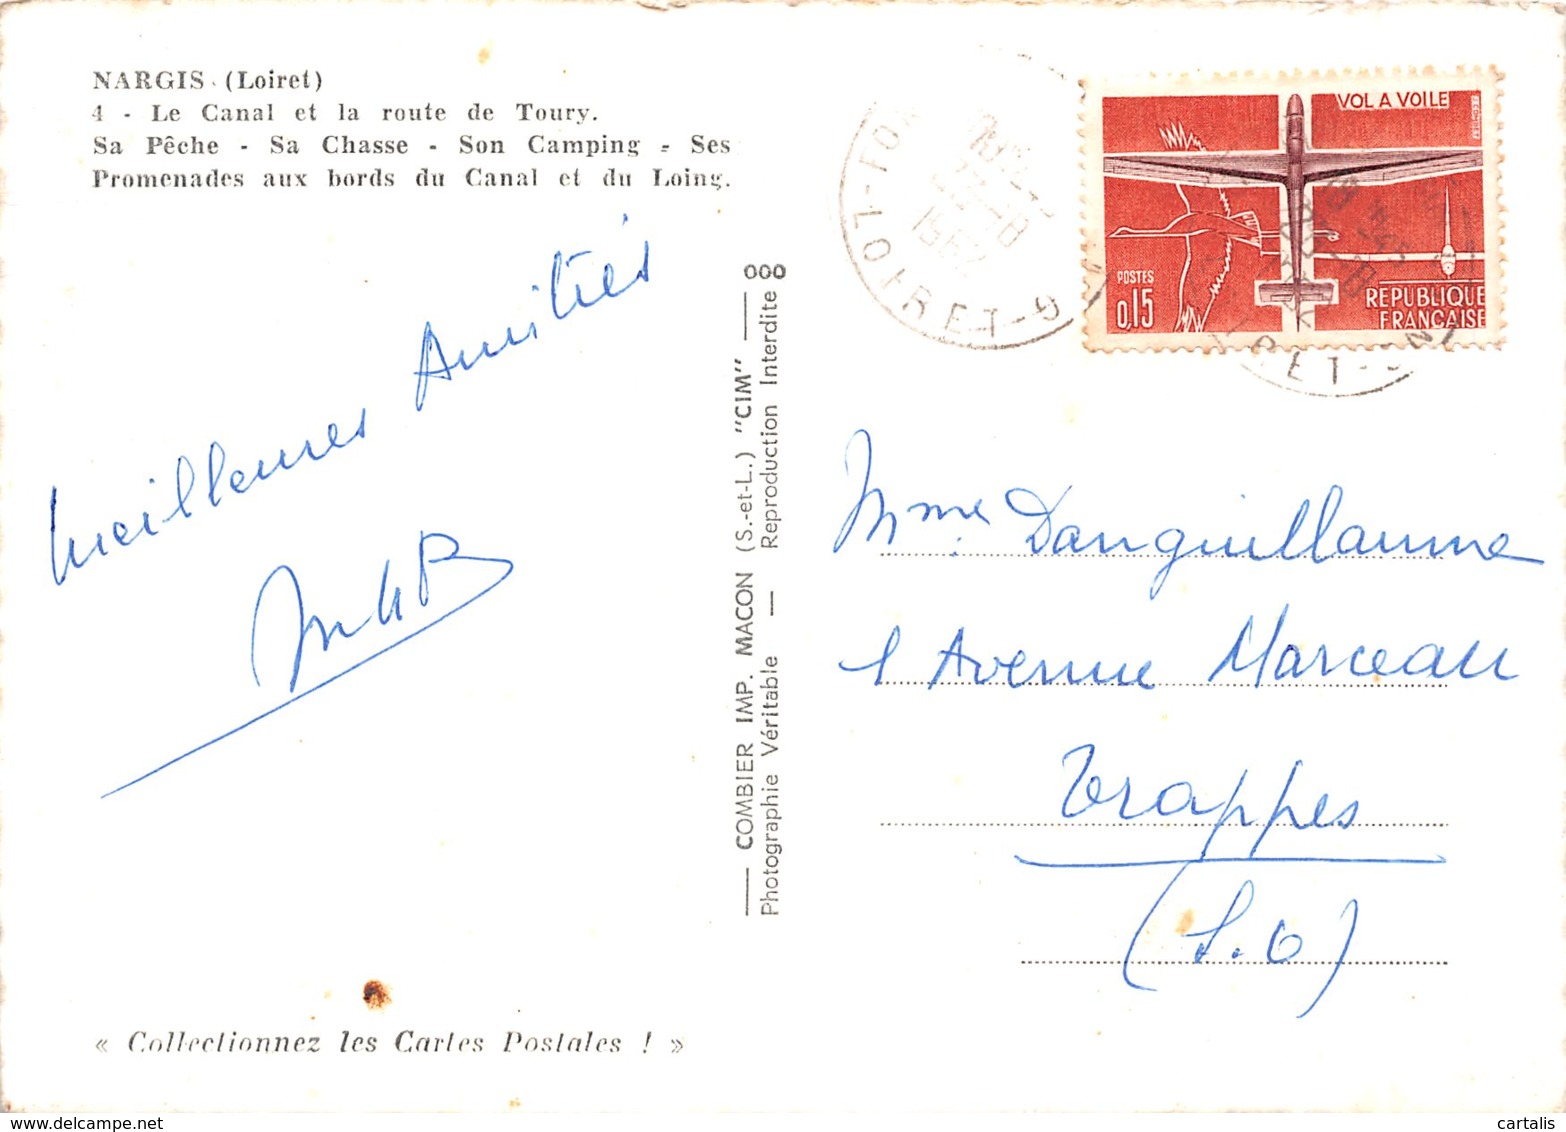 NARGIS (Loiret)
4 - Le Canal et la route de Toury.
Sa Pêche - Sa Chasse - Son Camping - Ses
Promenades aux bords du Canal et du Loing.
Meilleures Amitiés
« Collectionnez les Cartes Postales ! »
COMBIER IMP. MACON (S.-et-L.) "CIM"
Photographie Véritable — Reproduction Interdite
000
LOIRET
VOL A VOILE
POSTES
0,15
REPUBLIQUE
FRANÇAISE
Mme Danguillaume
1 Avenue Marceau
Trappes
(S.O)
www.cartalis.com
cartalis